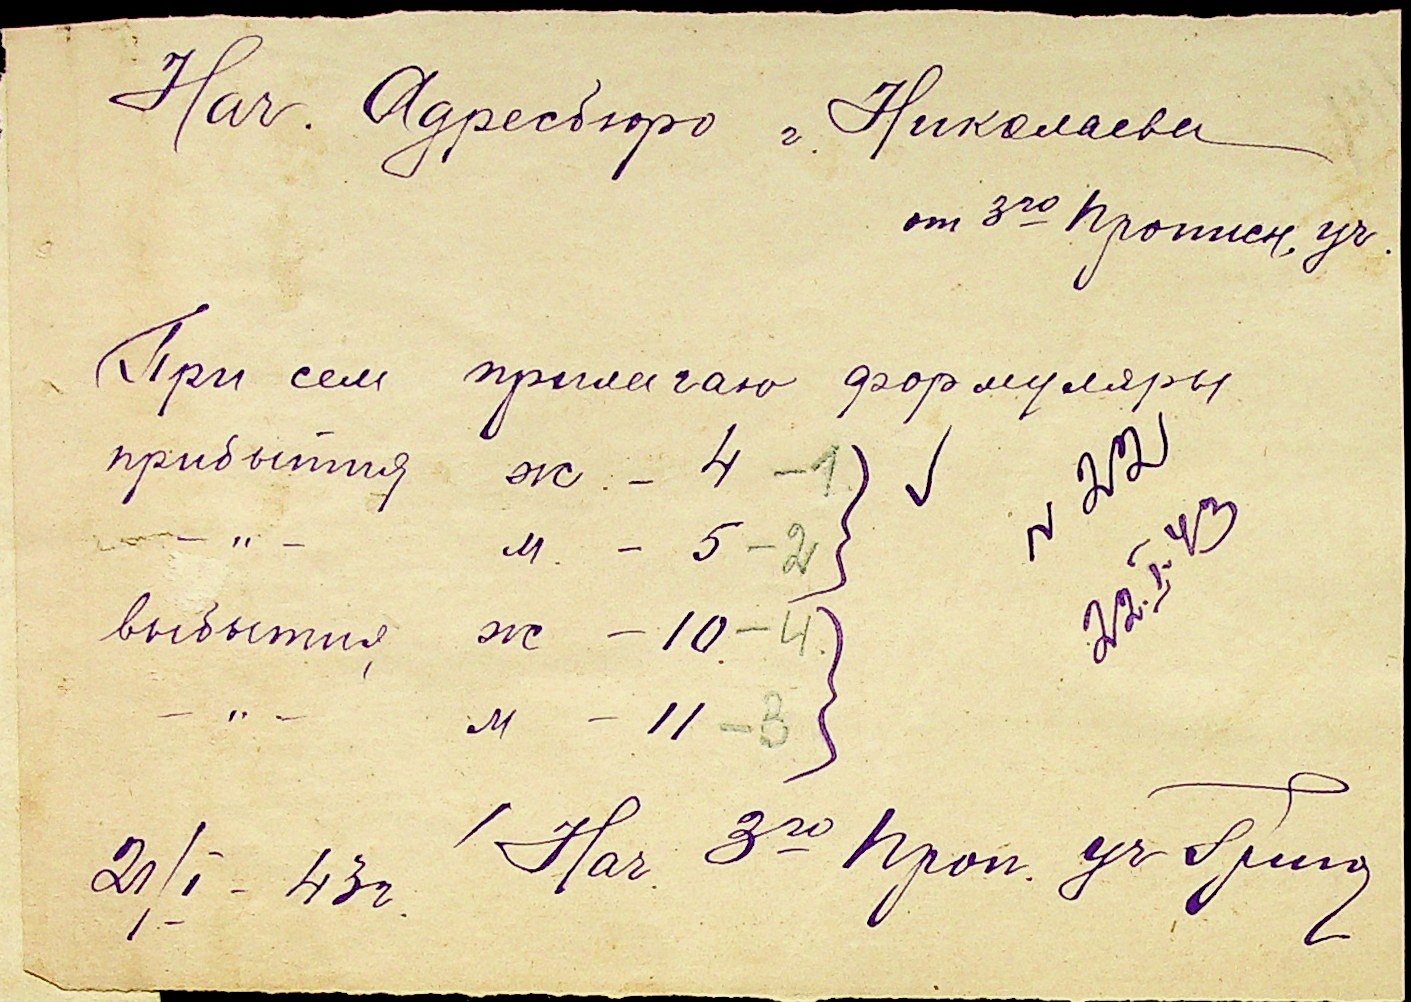 Нач. Адресбюро г. Николаева
от 3го Прописн. уч.
При сем прилагаю формуляры
прибытия ж. - 4 - 1.
- " - м. - 5 - 2
выбытия ж - 10 - 4.
- " - м - 11 - 3
N 22
22.I.43
21/I - 43г.
Нач. 3го Проп. уч